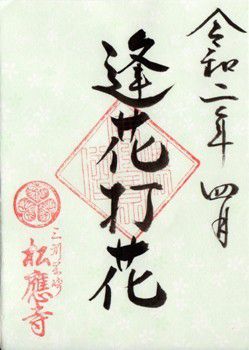 令和二年 四月
逢花打花
三河岡崎
松應寺